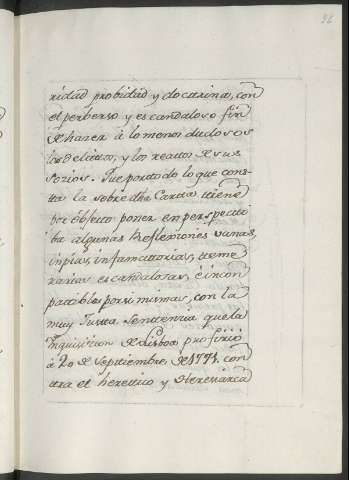 ridad probidad y doctrina, con
el perberso y escandaloso fin
de hazer à lo menos dudosos
los delitos, y los reatos de sus
Que por todo lo que cons-
ta la sobre dha Carta tiene
por objeto poner en perspecti
ba algunas Reflexiones vanas,
inpias, infamatorias, teme
rarias escandalosas, è incon
patobles por si mismas, con la
muy Justa Sentencia que la
Inquisicion de Lisboa profirió
à 20 de Septiembre de 1771. con
tra el heretico y Heresiarca